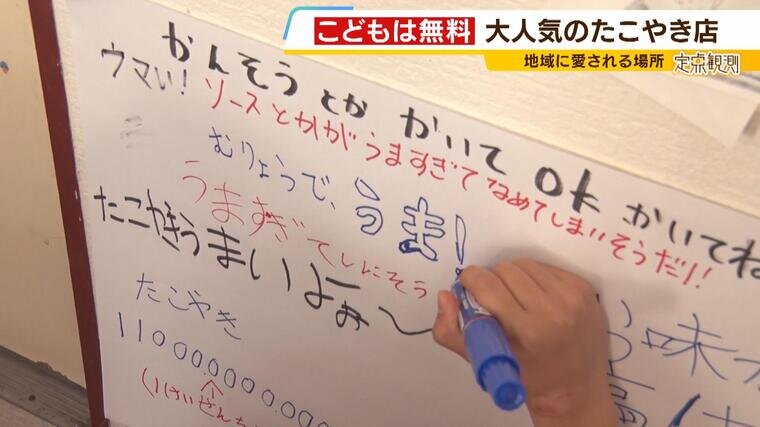 こどもは無料 大人気のたこやき店
地域に愛される場所 定点観測
かんそうとか かいて ok かいてね
ウマい! ソースとかがうますぎてなめてしまいそうだ!!
むりょうで、うま!
うますぎてしにそう
たこやきうまいよぉ〜
たこやき
味